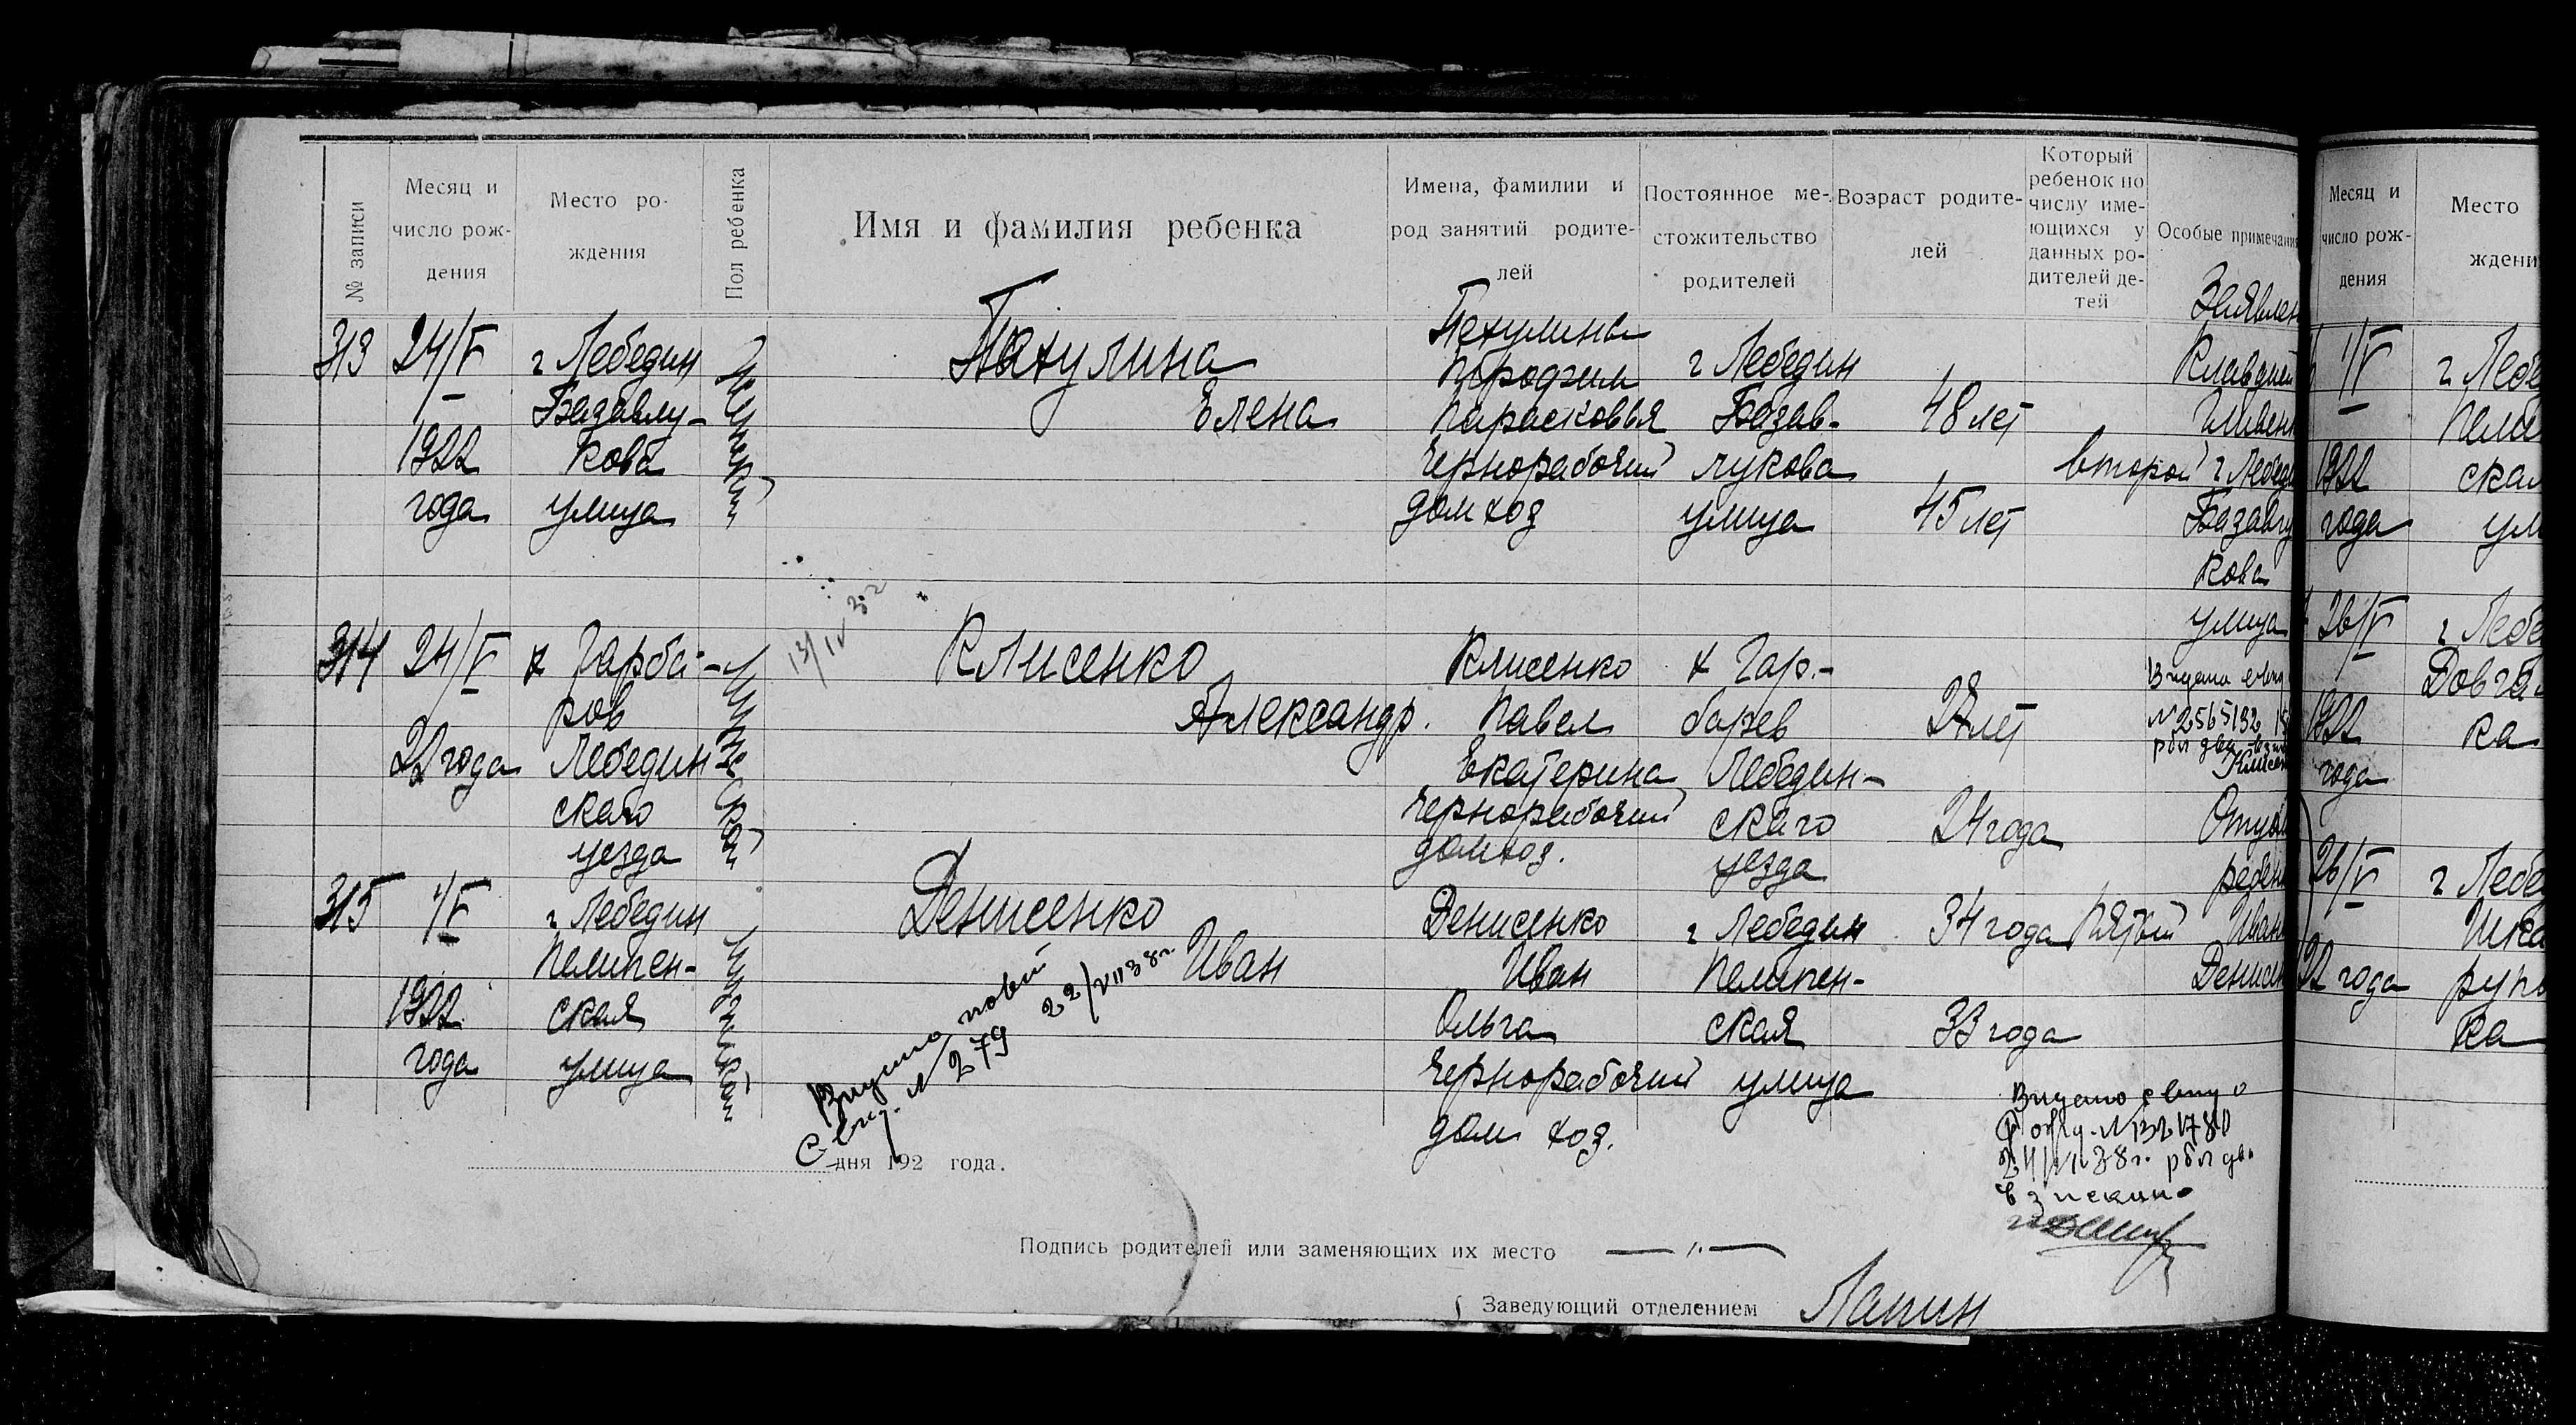 № записи
Месяц и число рож-
дения
Место ро-
ждения
Пол ребенка
Имя и фамилия ребенка
Имена, фамилии и
род занятий родите-
лей
Постоянное ме-
стожительство
родителей
Возраст родите-
лей
Который
ребенок по
числу име-
ющихся у
данных ро-
дителей де-
тей
Особые примечания
313
24/V
1922
года
г Лебедин
Базавлу-
кова
улица
Женский
Пахулина
Елена
Парасковья
чернорабочий
дом хоз
г Лебедин
Базав-
лукова
улица
48 лет
45 лет
второй
Заявлен
г Лебед
Базавлу
кова
улица
314
24/V
22 года
х Гарба-
ров
Лебедин
скаго
уезда
Мужской
13/IV
Клисенко
Александр.
Клисенко
Павел
Екатерина
чернорабочий
дом хоз.
х Гар-
барев
Лебедин-
скаго
уезда
24 года
№ 2565132
315
1/V
1922
года
г Лебедин
Пелипен-
ская
улица
Мужской
Денисенко
Иван
Видано новий
Свид. № 279 22/VII 38 г.
Денисенко
Иван
Ольга
чернорабочий
дом хоз.
г Лебедин
Пелипен-
ская
улица
34 года
33 года
пятый
Иван
Денисен
взискано
дня 192 года.
Подпись родителей или заменяющих их место
Заведующий отделением Лапин
Месяц и
число рож-
дения
Место
ждени
1/V
1922
года
г Лебе
Пелип
ская
ул
26/V
1922
года
г Лебе
Довга
ка
26/V
22 года
г Лебе
ка